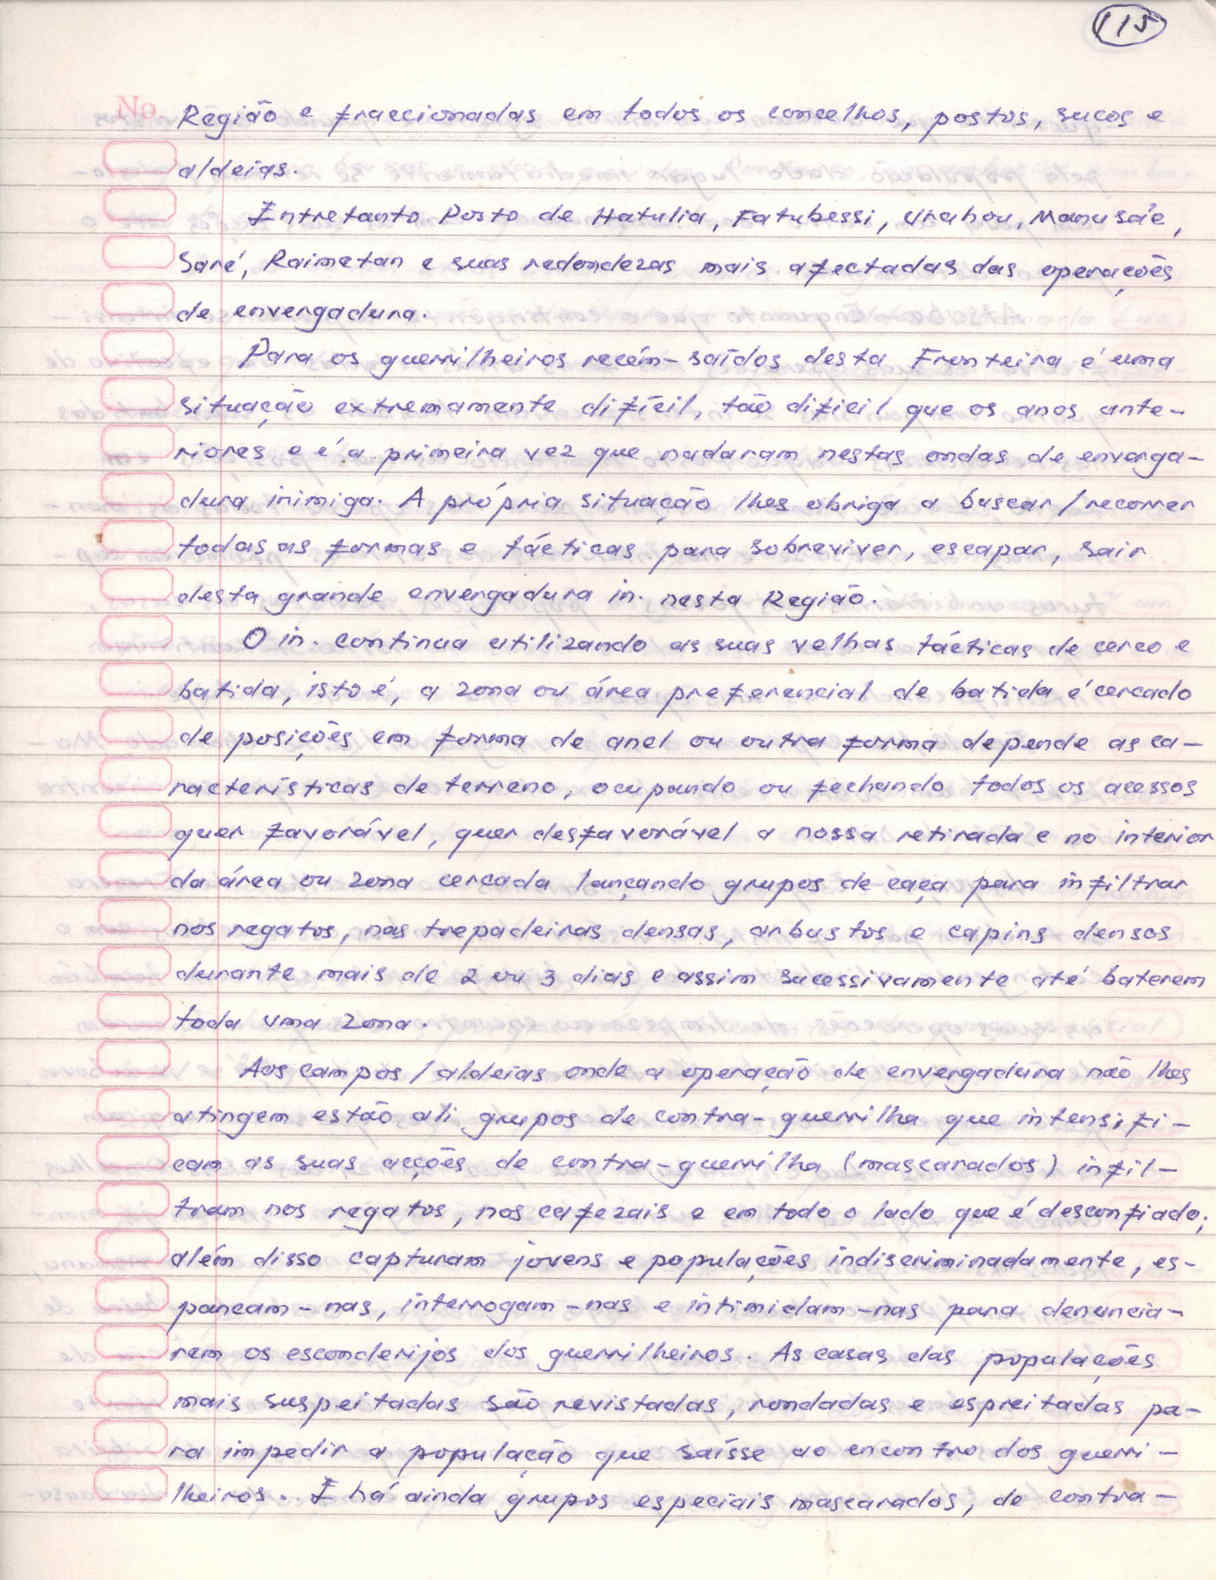 115
No
Região e fraccionadas em todos os concelhos, postos, sucos e
aldeias.
Entretanto Posto de Hatulia, Fatubessi, Urahou, Manusáe,
Saré, Raimetan e suas redondezas mais afectadas das operações
de envergadura.
Para os guerrilheiros recém-saídos desta Fronteira é uma
situação extremamente difícil, tão dificil que os anos ante-
riores e é a primeira vez que nadaram nestas ondas de enverga-
dura inimiga. A própria situação lhes obriga a buscar/recorrer
todas as formas e tácticas para sobreviver, escapar, sair
desta grande envergadura in. nesta Região.
O in. continua utilizando as suas velhas tácticas de cerco e
batida, isto é, a zona ou área preferencial de batida é cercado
de posições em forma de anel ou outra forma depende as ca-
racterísticas de terreno, ocupando ou fechando todos os acessos
quer favorável, quer desfavorável a nossa retirada e no interior
da área ou zona cercada lançando grupos de caça para infiltrar
nos regatos, nas trepadeiras densas, arbustos e capins densos
durante mais de 2 ou 3 dias e assim sucessivamente até baterem
toda uma zona.
Aos campos/aldeias onde a operação de envergadura não lhes
atingem estão ali grupos de contra-guerrilha que intensifi-
cam as suas acções de contra-guerrilha (mascarados) infil-
tram nos regatos, nos cafezais e em todo o lado que é desconfiado;
além disso capturam jovens e populações indiscriminadamente, es-
pancam-nas, interrogam-nas e intimidam-nas para denuncia-
rem os esconderijos dos guerrilheiros. As casas das populações
mais suspeitadas são revistadas, rondadas e espreitadas pa-
ra impedir a população que saísse ao encontro dos guerri-
lheiros. E há ainda grupos especiais mascarados, de contra-